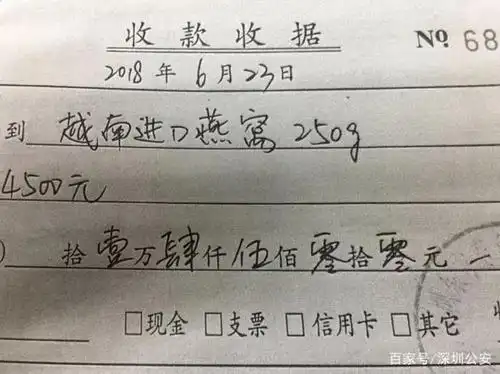 收款收据 № 68
2018年6月23日
到 越南进口燕窝 250g
4500元
) 拾壹万肆仟伍佰零拾零元 一
□现金 □支票 □信用卡 □其它 收
百家号/深圳公安